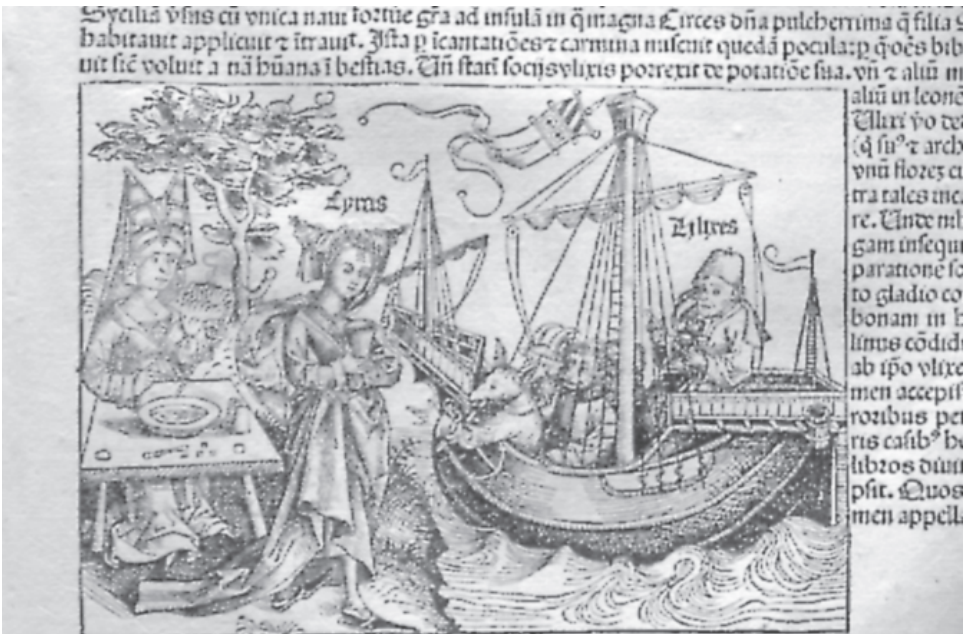 Syciliā v̄sus cū vnica naui fortūe gr̄a ad insulā in q̄ magna Circes dn̄a pulcherrima q̄ filia S
habitauit applicuit ⁊ ītrauit. Ista ꝑ īcantatiōes ⁊ carmina miscuit quedā pocula: q̄ oēs bib
uit sic̄ voluit a nā hūana ī bestias. Un̄ statī socijs vlixis porrexit de potatiōe sua. vn̄ ⁊ aliū in
Ulixes
aliū in leonē
Ulixi v̄o
(q̄ fuꝰ ⁊
vnū florez
tra tales
re. Unde
gam insequ
paratione
to gladio co
bonam in
linus cōdid
ab ip̄o vlixe
men accepi
roribus per
ris casibꝰ
libros
psit. Quos
men appell